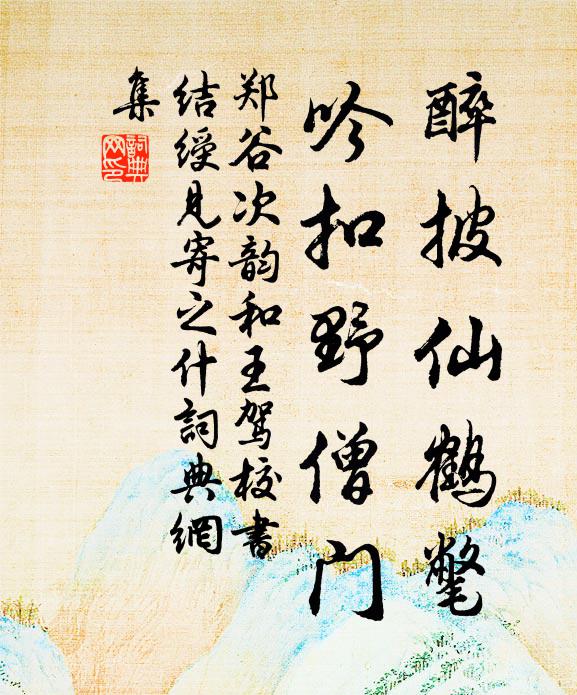 醉披仙鹤氅
吟扣野僧门
郑谷次韵和王驾校书
结绶见寄之什詞典網
集
詞典
网印